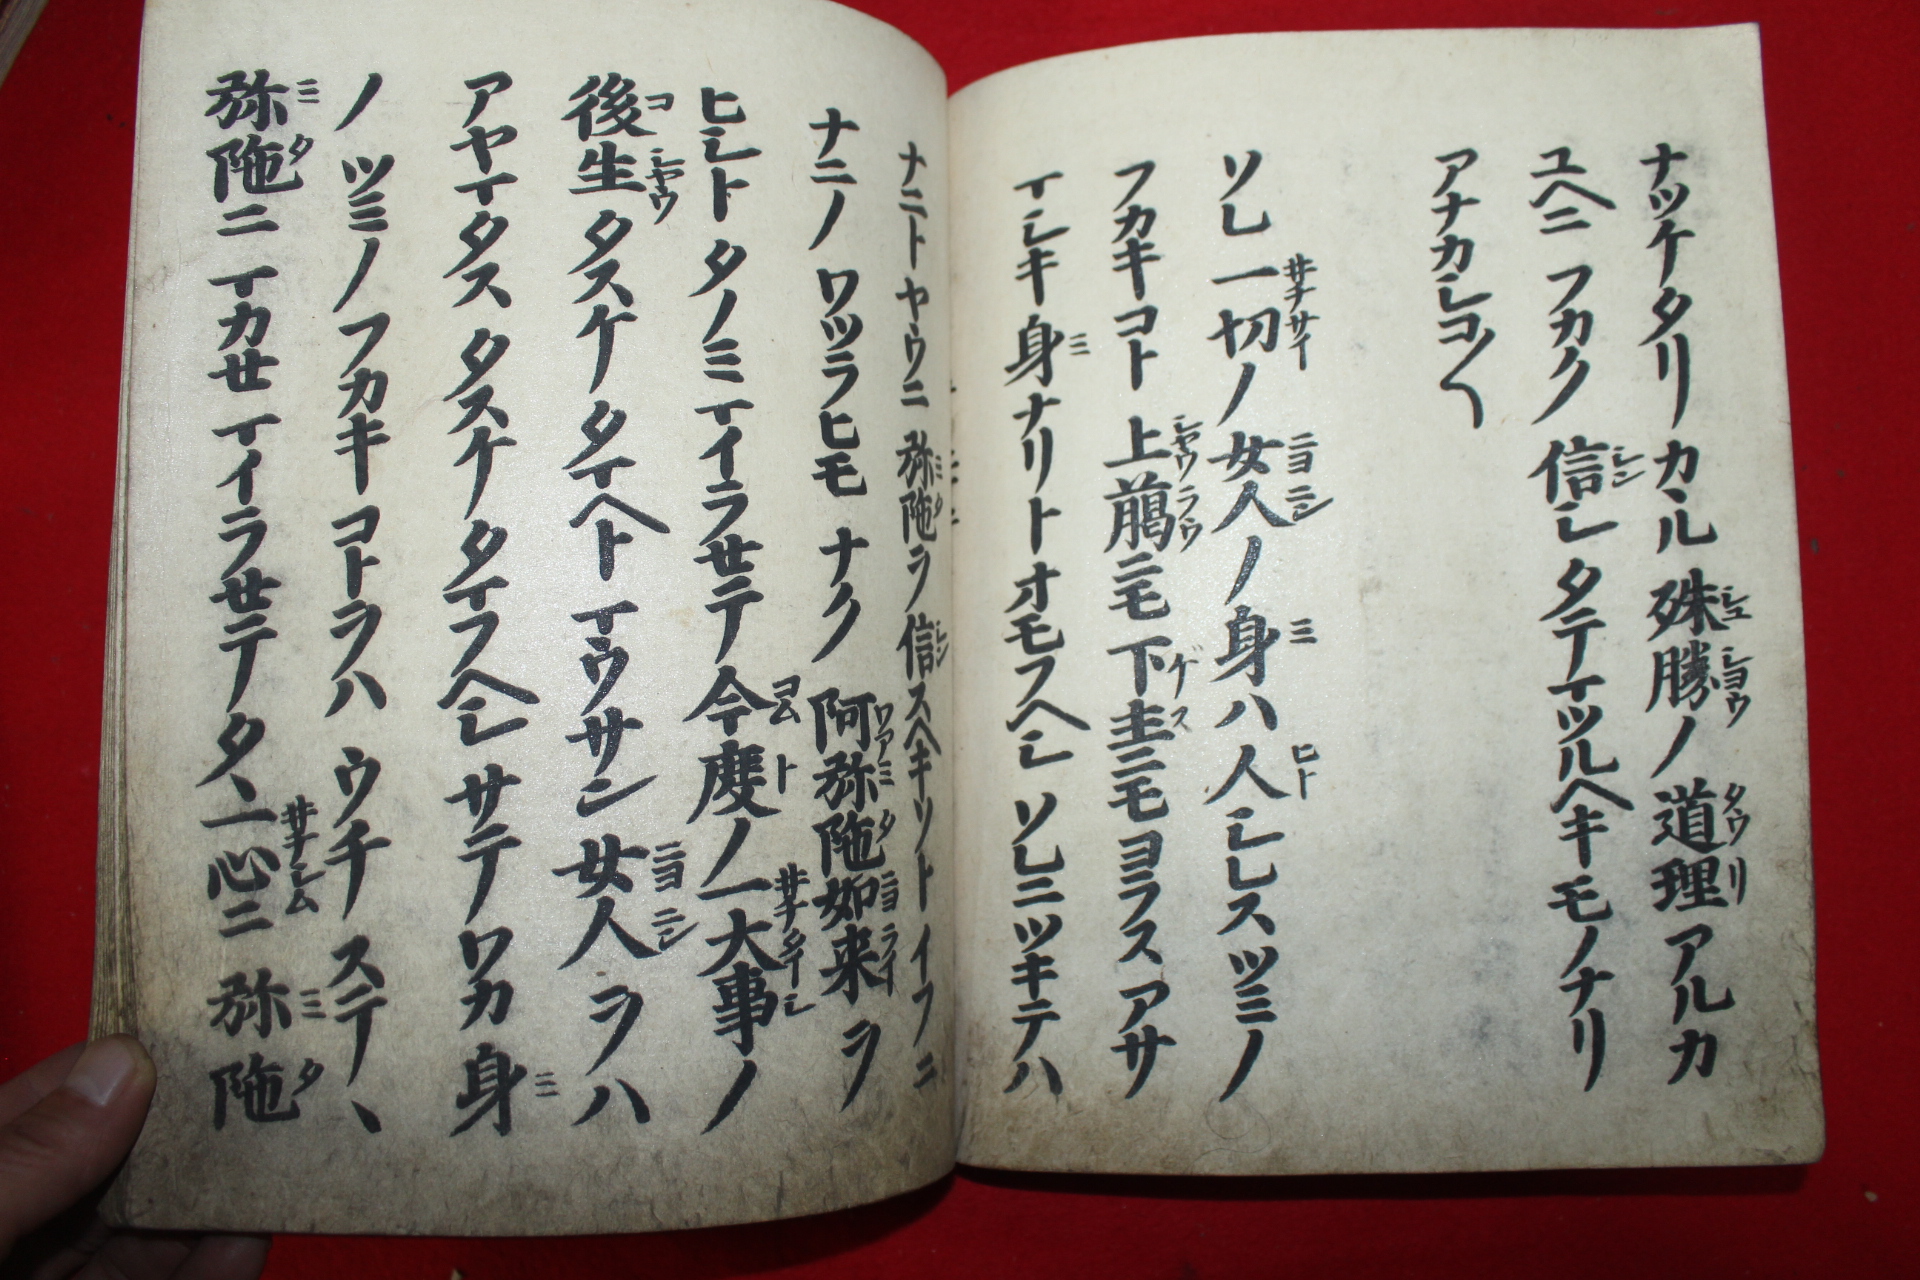 ナツケタリ カヽル 殊勝ノ 道理アルカ
ユヘニ フカク 信シタテマツルヘキ モノナリ
アナカシコ〳〵
ソレ 一切ノ 女人ノ 身ハ 人シレスツミノ
フカキコト 上﨟ニモ 下主ニモ ヨラス アサ
マシキ 身ナリトオモフヘシ ソレニツキテハ
ナニトヤウニ 弥陀ヲ 信スヘキソトイフニ
ナニノ ワツラヒモ ナク 阿弥陀如来ヲ
ヒシト タノミマイラセテ 今度ノ一大事ノ
後生 タスケ タマヘト マウサン 女人 ヲハ
アヤマタス タスケタマフヘシ サテ ワカ 身
ノ ツミノ フカキ コトヲハ ウチ ステヽ
弥陀ニ マカセ マイラセテ タヽ 一心ニ 弥陀